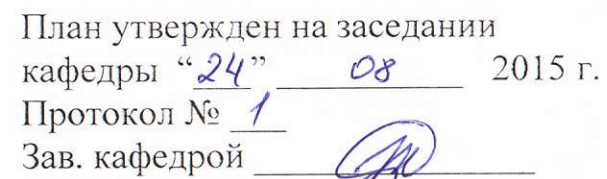 План утвержден на заседании
кафедры “24” 08 2015 г.
Протокол № 1
Зав. кафедрой